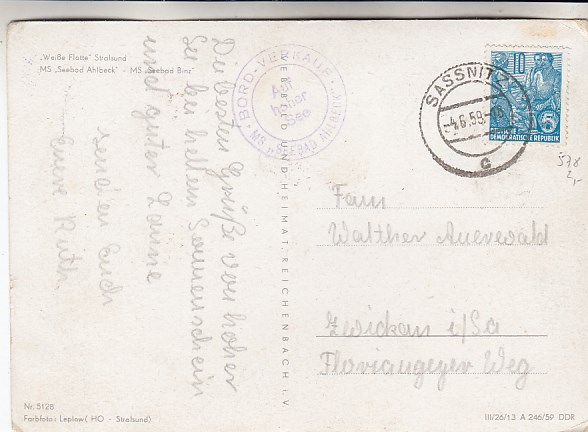 „Weiße Flotte" Stralsund
MS „Seebad Ahlbeck" - MS „Seebad Binz"
Die besten Grüße von hoher
See bei hellem Sonnenschein
und guter Laune
senden Euch
Eure Ruth
BORD-VERKAUF
Auf
hoher
See
MS „SEEBAD AHLBECK"
VEB BILD UND HEIMAT REICHENBACH I. V.
SASSNITZ
-4.6.59.-16
c
10
5
DEUTSCHE
DEMOKRATISCHE REPUBLIK
578
2,-
Fam
Walther Auerswald
Zwickau i/Sa
Floriangeyer Weg
Nr. 5128
Farbfoto: Leplow (HO - Stralsund)
III/26/13 A 246/59 DDR